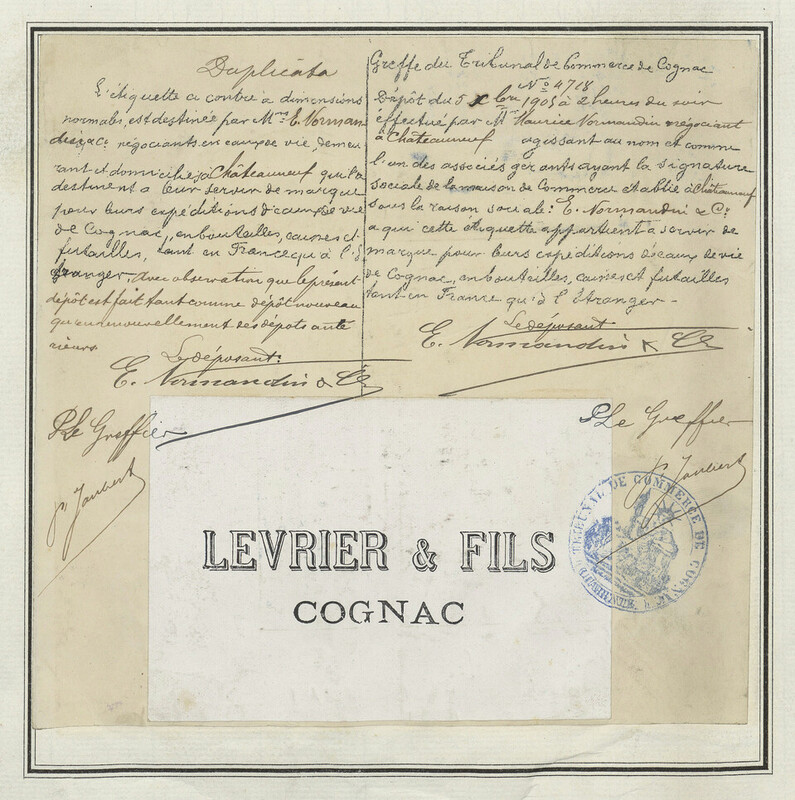 Duplicata
L'étiquette ci contre a dimensions
normales, est destinée par Mrs E. Norman
din & Co négociants en eaux de vie, demeu
rant et domiciliés à Châteauneuf qui la
destinent à leur servir de marque
pour leurs expéditions d'eaux de vie
de Cognac, en bouteilles, caisses et
futailles, tant en France qu'à l'É
tranger, avec observation que le présent
dépôt est fait tant comme dépôt nouveau
qu'en renouvellement des dépôts anté
rieurs.
Le déposant:
E. Normandin & Cie
P. Le Greffier
Greffe du Tribunal de Commerce de Cognac
No 4718
Dépôt du 5 Xbre 1905 à 2 heures du soir
effectué par Mr Maurice Normandin négociant
à Châteauneuf agissant au nom et comme
l'un des associés gérants ayant la signature
sociale de la maison de Commerce établie à Châteauneuf
sous la raison sociale: E. Normandin & Co
à qui cette étiquette appartient à servir de
marque pour leurs expéditions d'eaux de vie
de Cognac, en bouteilles, caisses et futailles
tant en France qu'à l'Étranger -
Le déposant
E. Normandin & Cie
P. Le Greffier
LEVRIER & FILS
COGNAC
TRIBUNAL DE COMMERCE DE COGNAC